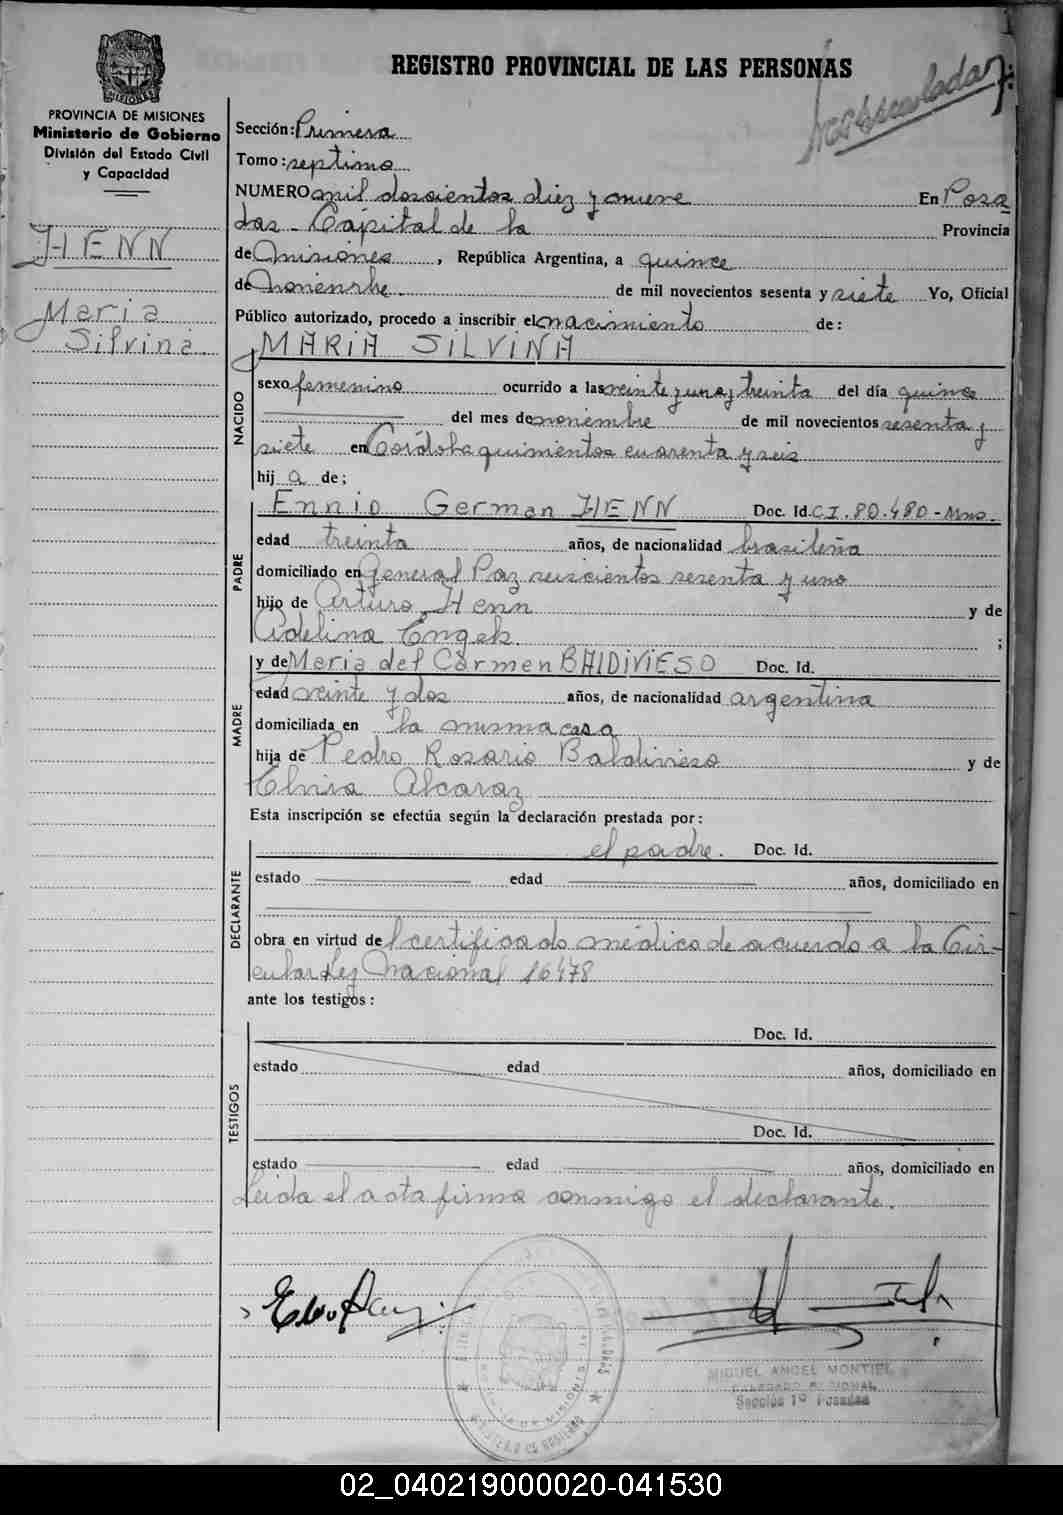 REGISTRO PROVINCIAL DE LAS PERSONAS
PROVINCIA DE MISIONES
Ministerio de Gobierno
División del Estado Civil
y Capacidad
HENN
Maria
Silvina
Sección: Primera
Tomo: septimo
NUMERO mil doscientos diez y nueve En Posa
das - Capital de la Provincia
de Misiones, República Argentina, a quince
de noviembre de mil novecientos sesenta y siete Yo, Oficial
Público autorizado, procedo a inscribir el nacimiento de:
MARIA SILVINA
NACIDO
sexo femenino ocurrido a las veinte y una y treinta del día quince
del mes de noviembre de mil novecientos sesenta y
siete en Córdoba quinientos cuarenta y seis
hij a de;
PADRE
Ennio German HENN Doc. Id. C.I. 80.480 - Mnes.
edad treinta años, de nacionalidad brasileña
domiciliado en General Paz seiscientos sesenta y uno
hijo de Arturo Henn y de
Adelina Engek ;
MADRE
y de Maria del Carmen BALDIVIESO Doc. Id.
edad veinte y dos años, de nacionalidad argentina
domiciliada en la misma casa
hija de Pedro Rosario Baldivieso y de
Elvira Alcaraz
Esta inscripción se efectúa según la declaración prestada por:
DECLARANTE
el padre. Doc. Id.
estado edad años, domiciliado en
obra en virtud del certificado médico de acuerdo a la Cir-
cular Ley Nacional 16478
ante los testigos:
TESTIGOS
Doc. Id.
estado edad años, domiciliado en
Doc. Id.
estado edad años, domiciliado en
Leida el acta firma conmigo el declarante.
MIGUEL ANGEL MONTIEL
DELEGADO REGIONAL
Sección 1º Posadas
02_040219000020-041530